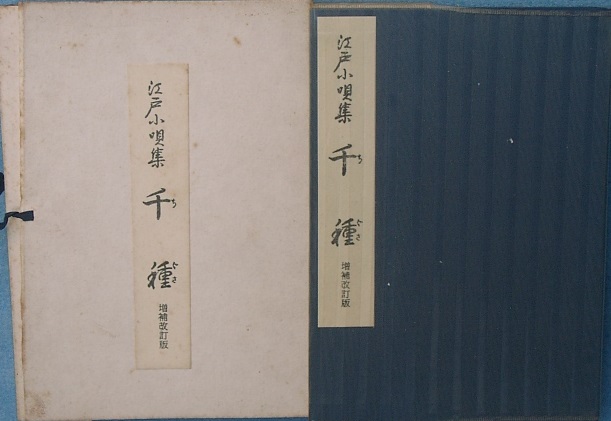 江戸小唄集
千種
ちぐさ
増補改訂版
江戸小唄集
千種
ちぐさ
増補改訂版